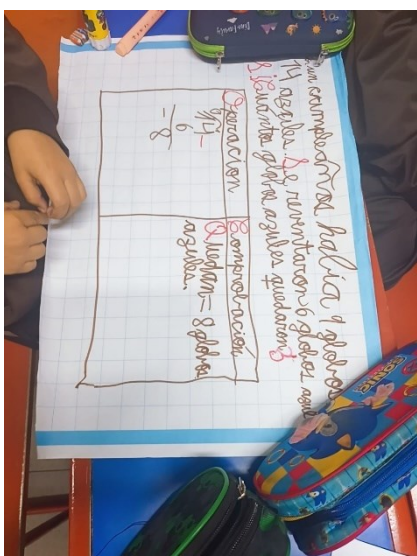 un cumpleaños había 9 globos
14 azules Se reventaron 6 globos azule
¿Cuántos globos azules quedaron?
Operación
14
6
8
Comprobación
Quedan = 8 globos
azules.
SONIC